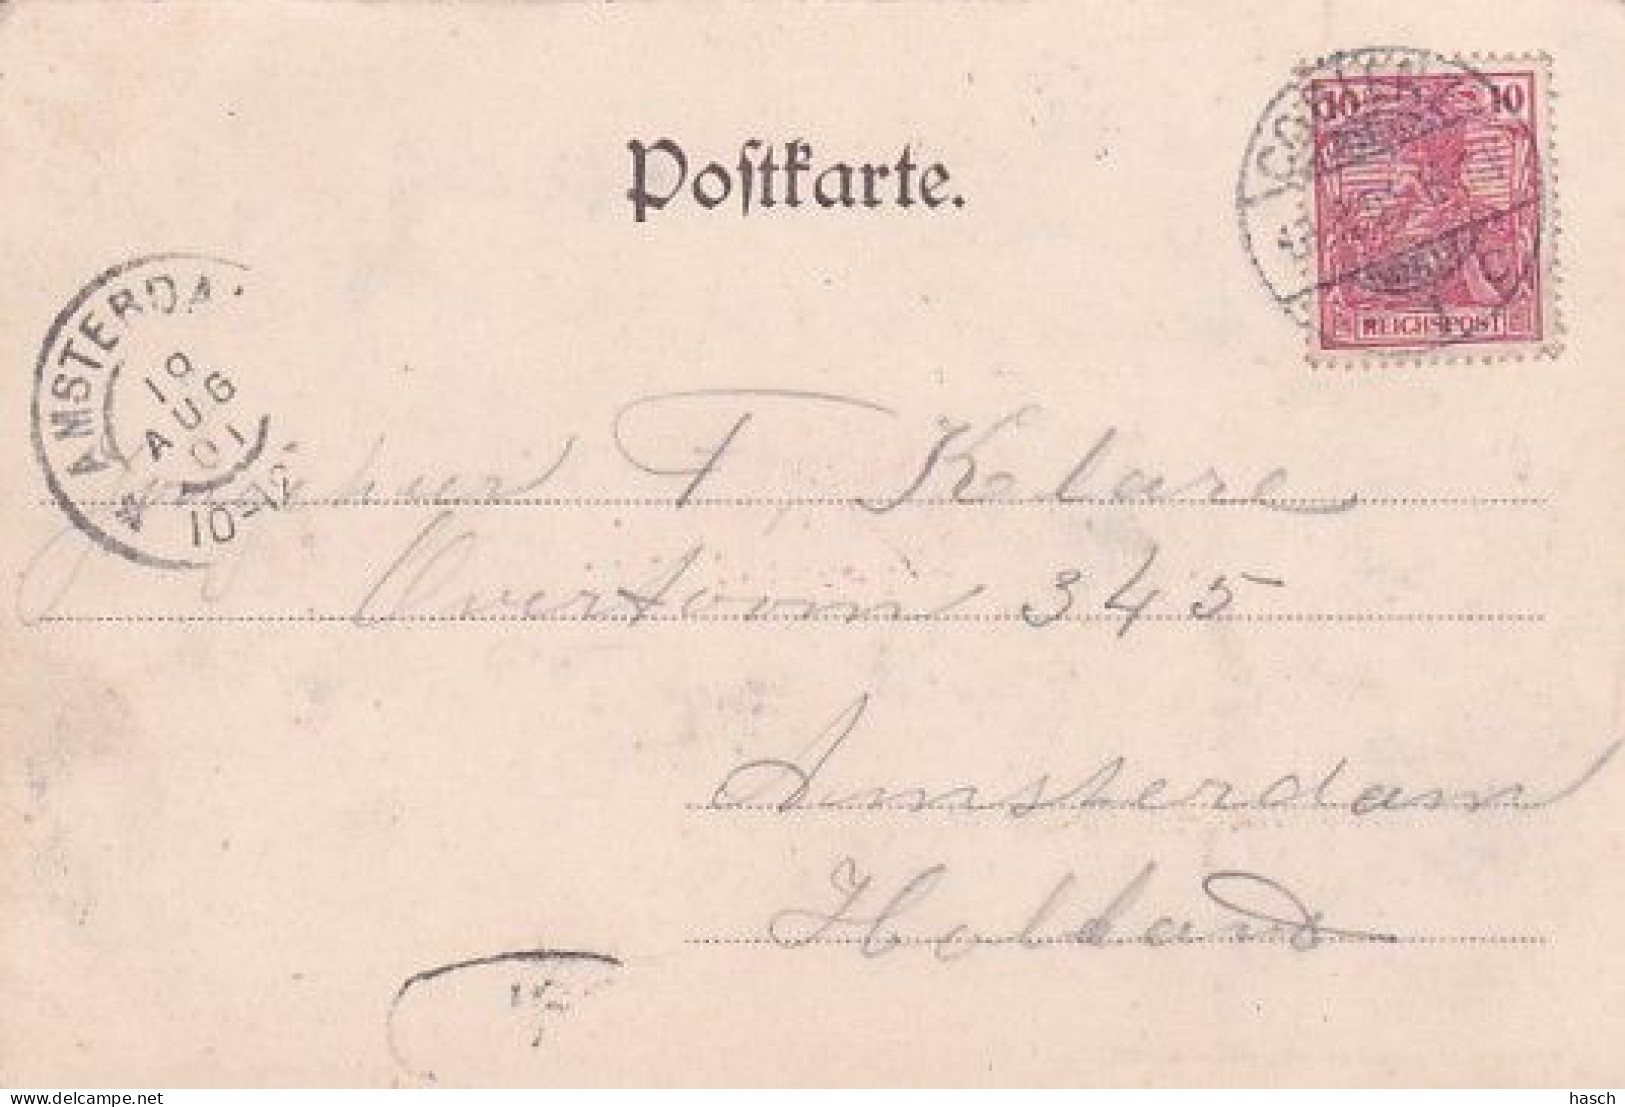 10 10
Postkarte.
COBLENZ
REICHSPOST
AMSTERDA
19
AUG
01
10-12
T Kelare
Overtoom 345
Amsterdam
Holland
www.delcampe.net
hasch